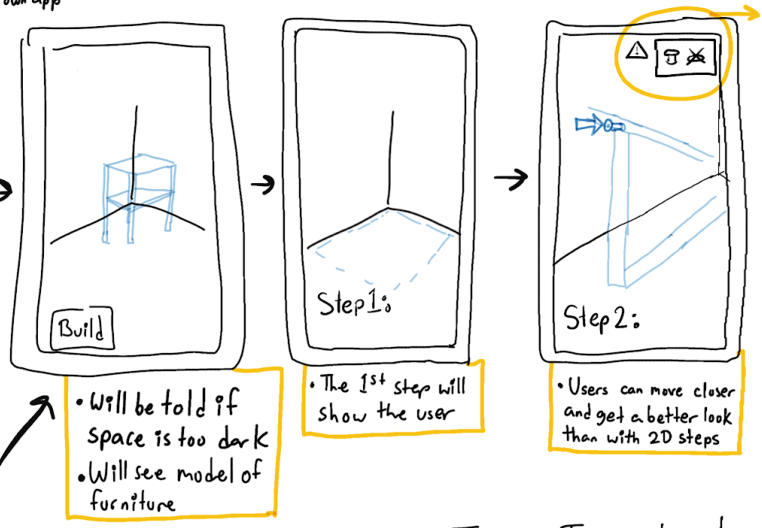 own app
Build
• Will be told if
space is too dark
• Will see model of
furniture
Step 1:
• The 1st step will
show the user
Step 2:
• Users can move closer
and get a better look
than with 2D steps